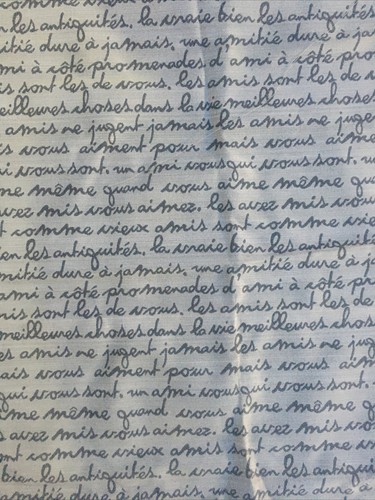 comme vieux amis
n les antiquités. la vraie bien les antiquités
itié dure à jamais. une amitié dure à ja
mi à côté promenades d ami à côté pro
is sont les de vous. les amis sont les de
eilleures choses dans la vie meilleures choses
amis ne jugent jamais les amis ne juge
is vous aiment pour mais vous aime
i vous sont. un ami vous qui vous sont. u
me même quand vous aime même qu
avez mis vous aimez. les avez mis vou
t comme vieux amis sont comme vie
en les antiquités. la vraie bien les antiquité
mitié dure à jamais. une amitié dure à ja
ami à côté promenades d ami à côté pro
mis sont les de vous. les amis sont les de
meilleures choses dans la vie meilleures chos
es amis ne jugent jamais les amis ne jug
ais vous aiment pour mais vous aim
qui vous sont. un ami vous qui vous sont.
ime même quand vous aime même q
s avez mis vous aimez. les avez mis vou
ont comme vieux amis sont comme vi
bien les antiquités. la vraie bien les antiqui
amitié dure à jamais. une amitié dure à